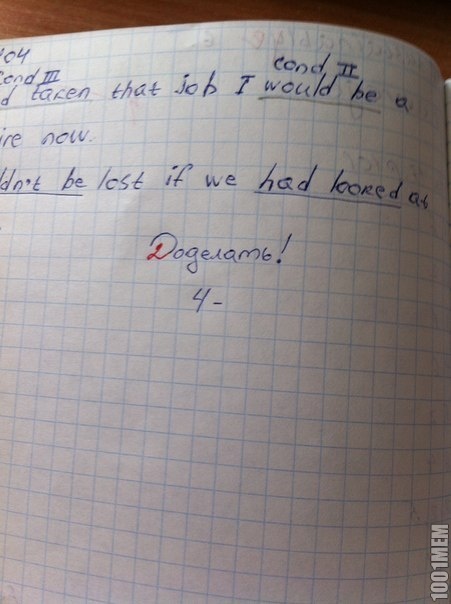 04
cond III
cond II
d taken that job I would be a
ire now.
ldn't be lost if we had looked at
Доделать!
4-
1001MEM